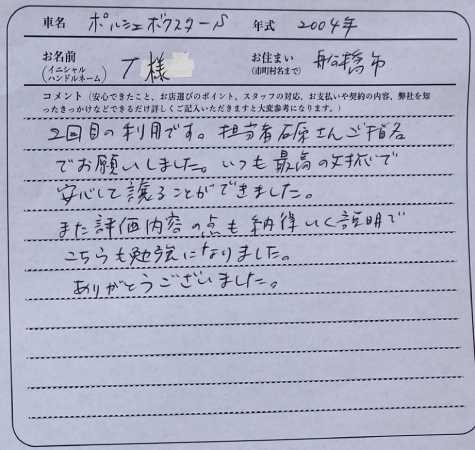 車名 ポルシェボクスターS 年式 2004年
お名前 T様 お住まい 船橋市
(イニシャル (市町村名まで)
ハンドルネーム)
コメント（安心できたこと、お店選びのポイント、スタッフの対応、お支払いや契約の内容、弊社を知
ったきっかけなどできるだけ詳しくご記入いただきますと大変参考になります。）
2回目の利用です。担当者石原さんご指名
でお願いしました。いつも最高の対応で
安心して譲ることができました。
また評価内容の点も納得いく説明で
こちらも勉強になりました。
ありがとうございました。